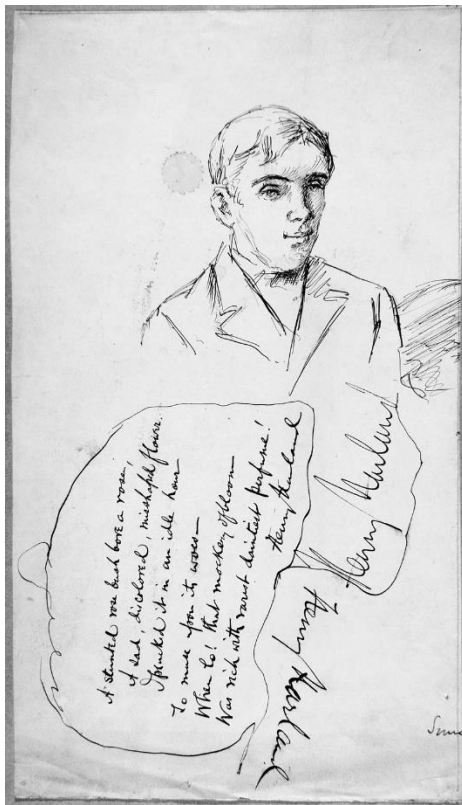 A stunted rose bush bore a rose,
A sad, discolored, misshaped flower.
I plucked it in an idle hour
To muse upon its woes—
When lo! that mockery of bloom
Was rich with rarest daintiest perfume!
Henry Harland
Henry Harland
Henry Harland